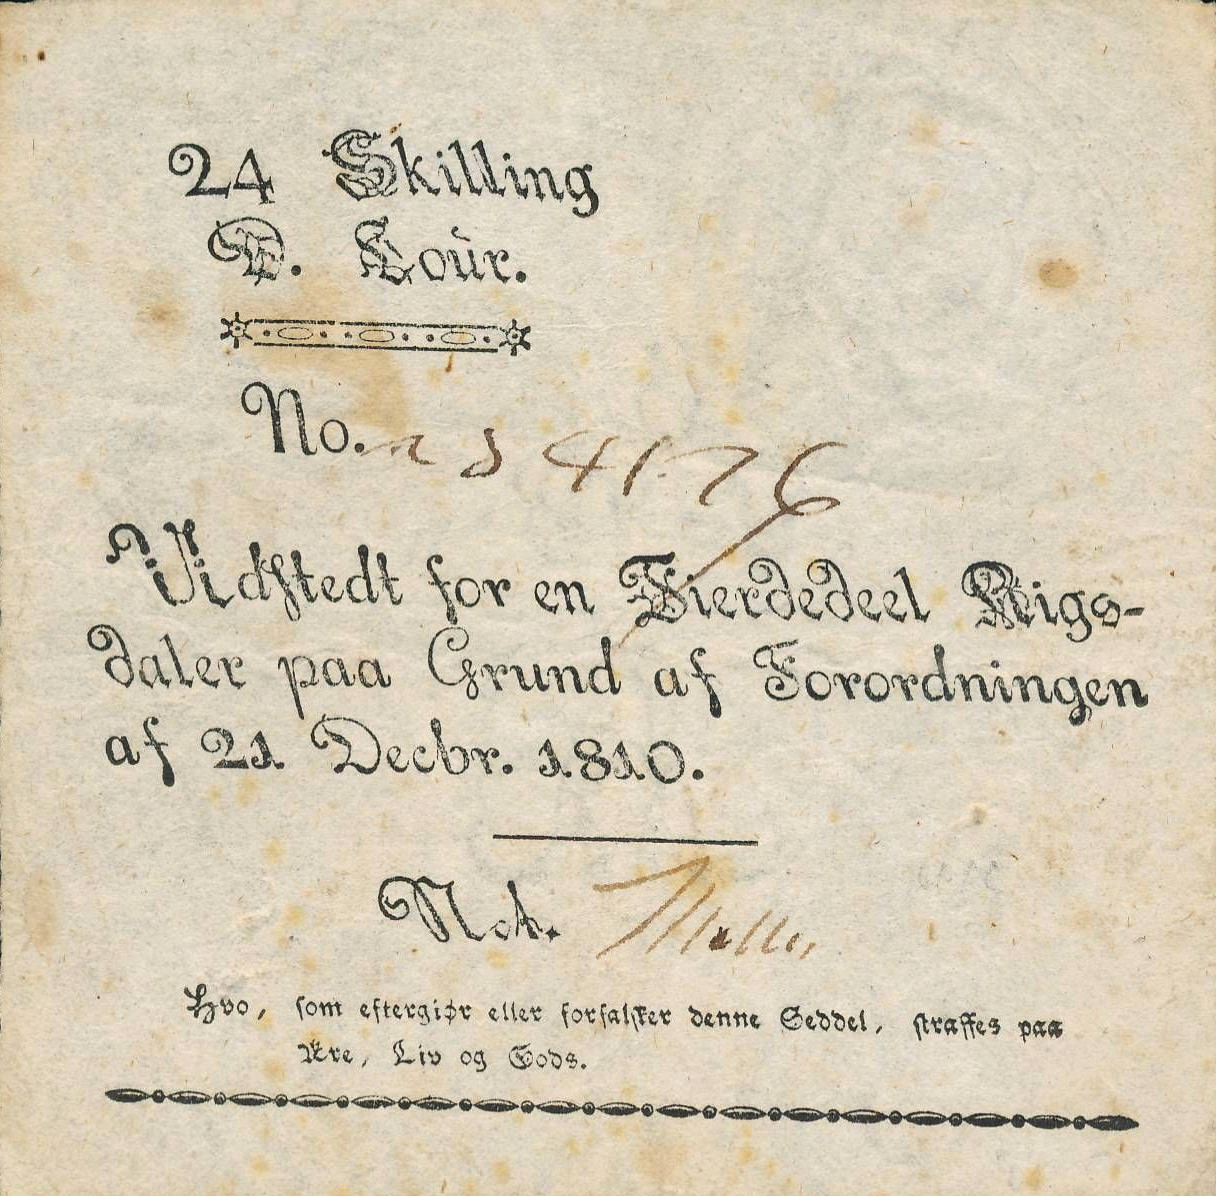 24 Skilling
D. Cour.
No. 254176
Udstedt for en Fierdedeel Rigs-
daler paa Grund af Forordningen
af 21 Decbr. 1810.
Not. Møller
Hvo, som eftergiør eller forfalsker denne Seddel, straffes paa
Ære, Liv og Gods.